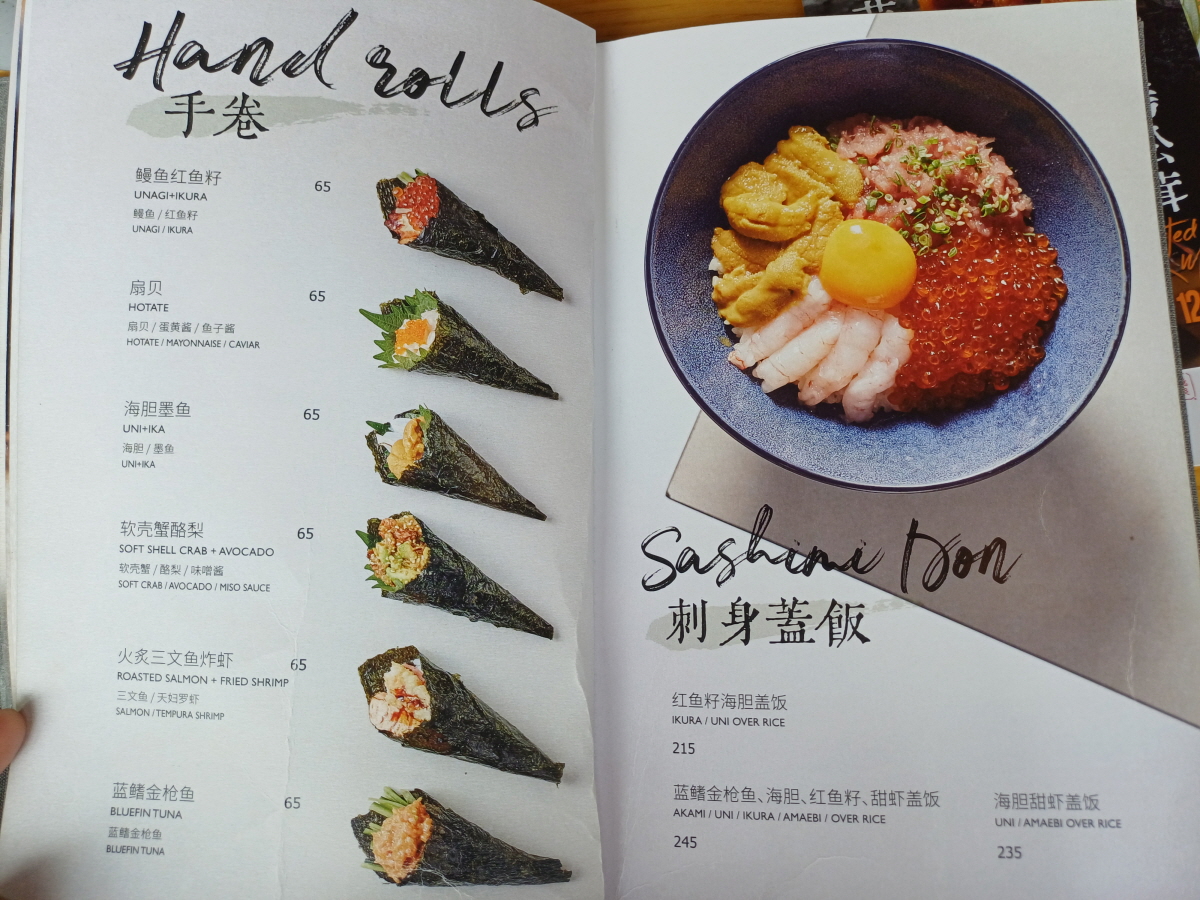 Hand rolls
手卷
鳗鱼红鱼籽 65
UNAGI+IKURA
鳗鱼 / 红鱼籽
UNAGI / IKURA
扇贝 65
HOTATE
扇贝 / 蛋黄酱 / 鱼子酱
HOTATE / MAYONNAISE / CAVIAR
海胆墨鱼 65
UNI+IKA
海胆 / 墨鱼
UNI+IKA
软壳蟹酪梨 65
SOFT SHELL CRAB + AVOCADO
软壳蟹 / 酪梨 / 味噌酱
SOFT CRAB / AVOCADO / MISO SAUCE
火炙三文鱼炸虾 65
ROASTED SALMON + FRIED SHRIMP
三文鱼 / 天妇罗虾
SALMON / TEMPURA SHRIMP
蓝鳍金枪鱼 65
BLUEFIN TUNA
蓝鳍金枪鱼
BLUEFIN TUNA
Sashimi Don
刺身蓋飯
红鱼籽海胆盖饭
IKURA / UNI OVER RICE
215
蓝鳍金枪鱼、海胆、红鱼籽、甜虾盖饭
AKAMI / UNI / IKURA / AMAEBI / OVER RICE
245
海胆甜虾盖饭
UNI / AMAEBI OVER RICE
235
12